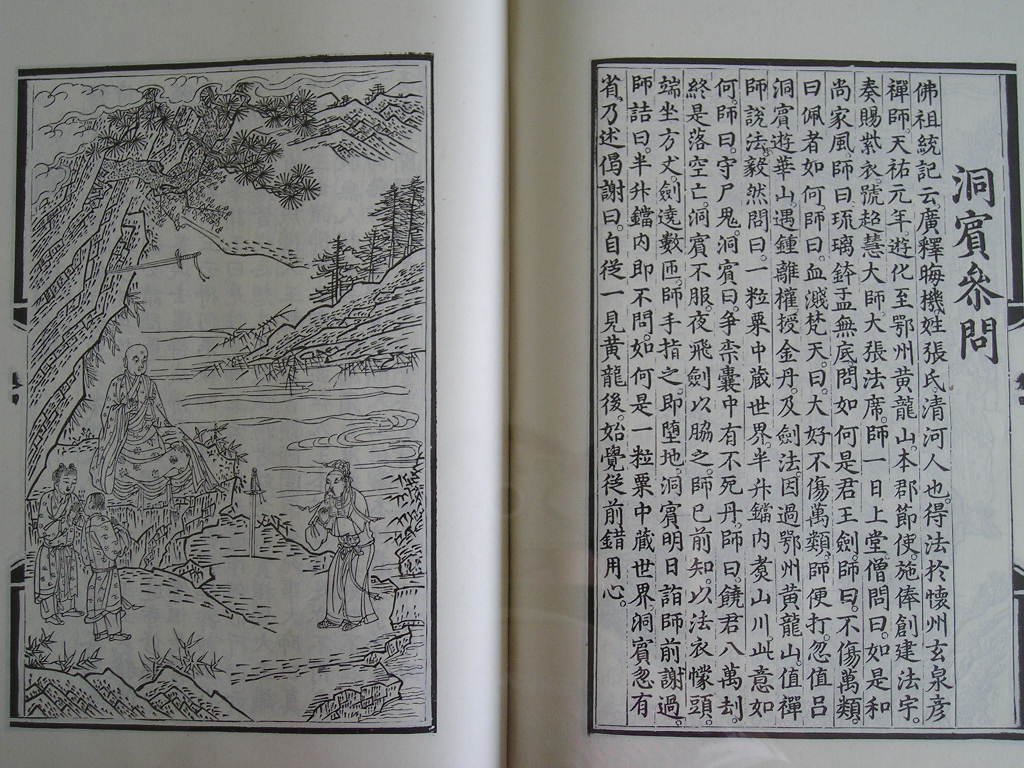 洞賓叅問
佛祖統記云廣釋晦機姓張氏清河人也。得法於懷州玄泉彦
禪師。天祐元年。遊化至鄂州黃龍山。本郡節使。施俸創建法宇。
奏賜紫衣號超慧大師。大張法席。師一日上堂僧問曰。如是和
尚家風師曰琉璃鉢盂無底問如何是君王劍。師曰。不傷萬類。
曰佩者如何師曰。血濺梵天。曰。大好不傷萬類。師便打。忽值呂
洞賓遊華山。遇鍾離權授金丹及劍法。因過鄂州黃龍山。值禪
師說法。毅然問曰。一粒粟中藏世界半升鐺內煑山川。此意如
何。師曰。守尸鬼。洞賓曰。争柰囊中有不死丹。師曰。饒君八萬刼
終是落空亡。洞賓不服。夜飛劍以脇之。師已前知。以法衣幪頭。
端坐方丈。劍遶數匝。師手指之。即墮地。洞賓明日詣師前謝過。
師詰曰。半升鐺內即不問。如何是一粒粟中藏世界。洞賓忽有
省。乃述偈謝曰。自從一見黃龍後。始覺從前錯用心。